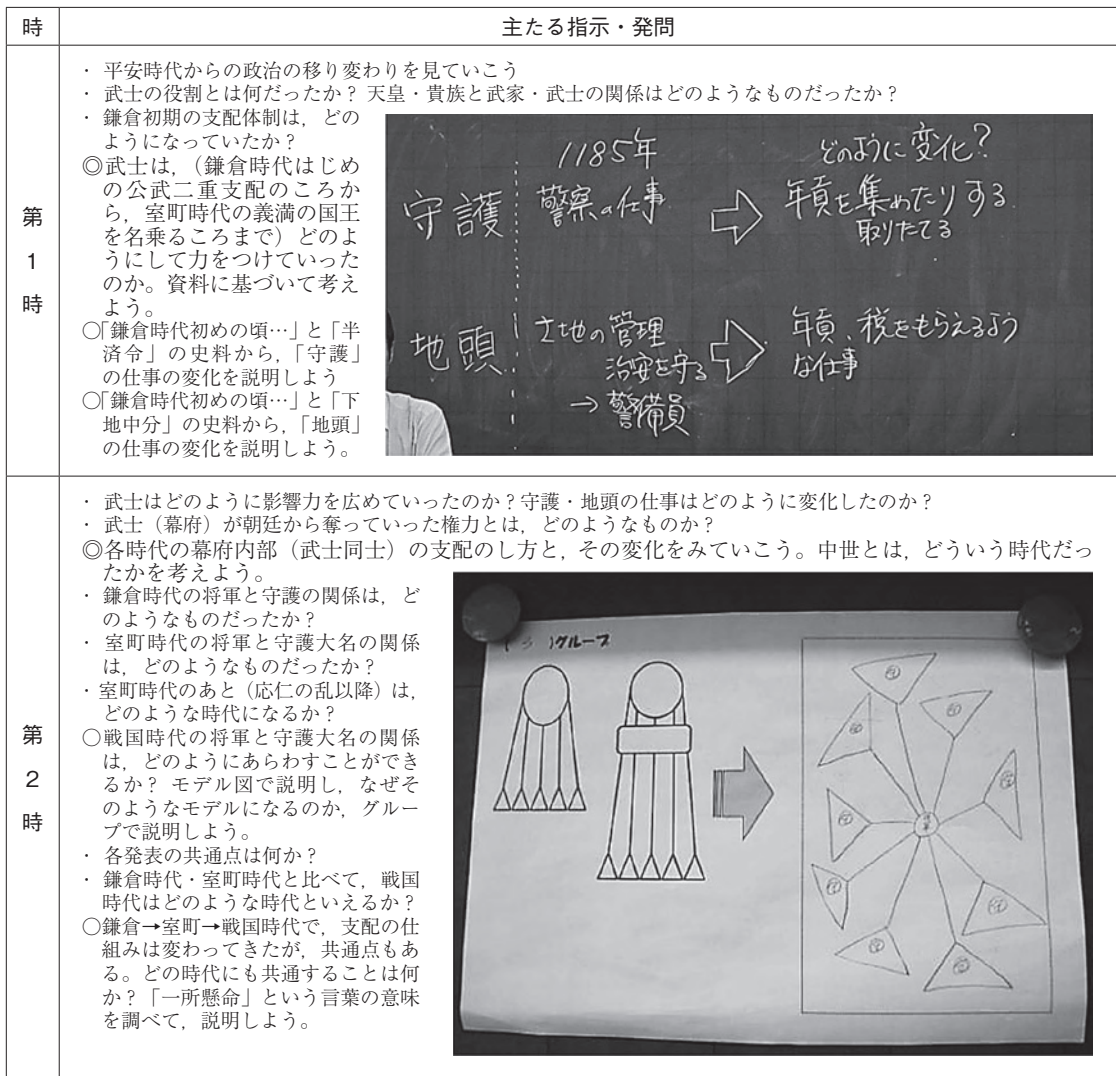 時
主たる指示・発問
第
1
時
・ 平安時代からの政治の移り変わりを見ていこう
・ 武士の役割とは何だったか? 天皇・貴族と武家・武士の関係はどのようなものだったか?
・ 鎌倉初期の支配体制は，どの
ようになっていたか?
◎武士は，（鎌倉時代はじめ
の公武二重支配のころか
ら，室町時代の義満の国王
を名乗るころまで）どのよ
うにして力をつけていった
のか。資料に基づいて考え
よう。
○「鎌倉時代初めの頃…」と「半
済令」の史料から，「守護」
の仕事の変化を説明しよう
○「鎌倉時代初めの頃…」と「下
地中分」の史料から，「地頭」
の仕事の変化を説明しよう。
1185年
どのように変化?
守護
警察の仕事
年貢を集めたりする
取りたてる
地頭
土地の管理
治安を守る
→ 警備員
年貢、税をもらえるよう
な仕事
第
2
時
・ 武士はどのように影響力を広めていったのか?守護・地頭の仕事はどのように変化したのか?
・ 武士（幕府）が朝廷から奪っていった権力とは，どのようなものか?
◎各時代の幕府内部（武士同士）の支配のし方と，その変化をみていこう。中世とは，どういう時代だっ
たかを考えよう。
・ 鎌倉時代の将軍と守護の関係は，ど
のようなものだったか?
・ 室町時代の将軍と守護大名の関係
は，どのようなものだったか?
・室町時代のあと（応仁の乱以降）は，
どのような時代になるか?
○戦国時代の将軍と守護大名の関係
は，どのようにあらわすことができ
るか? モデル図で説明し，なぜそ
のようなモデルになるのか，グルー
プで説明しよう。
・ 各発表の共通点は何か?
・ 鎌倉時代・室町時代と比べて，戦国
時代はどのような時代といえるか?
○鎌倉→室町→戦国時代で，支配の仕
組みは変わってきたが，共通点もあ
る。どの時代にも共通することは何
か?「一所懸命」という言葉の意味
を調べて，説明しよう。
グループ